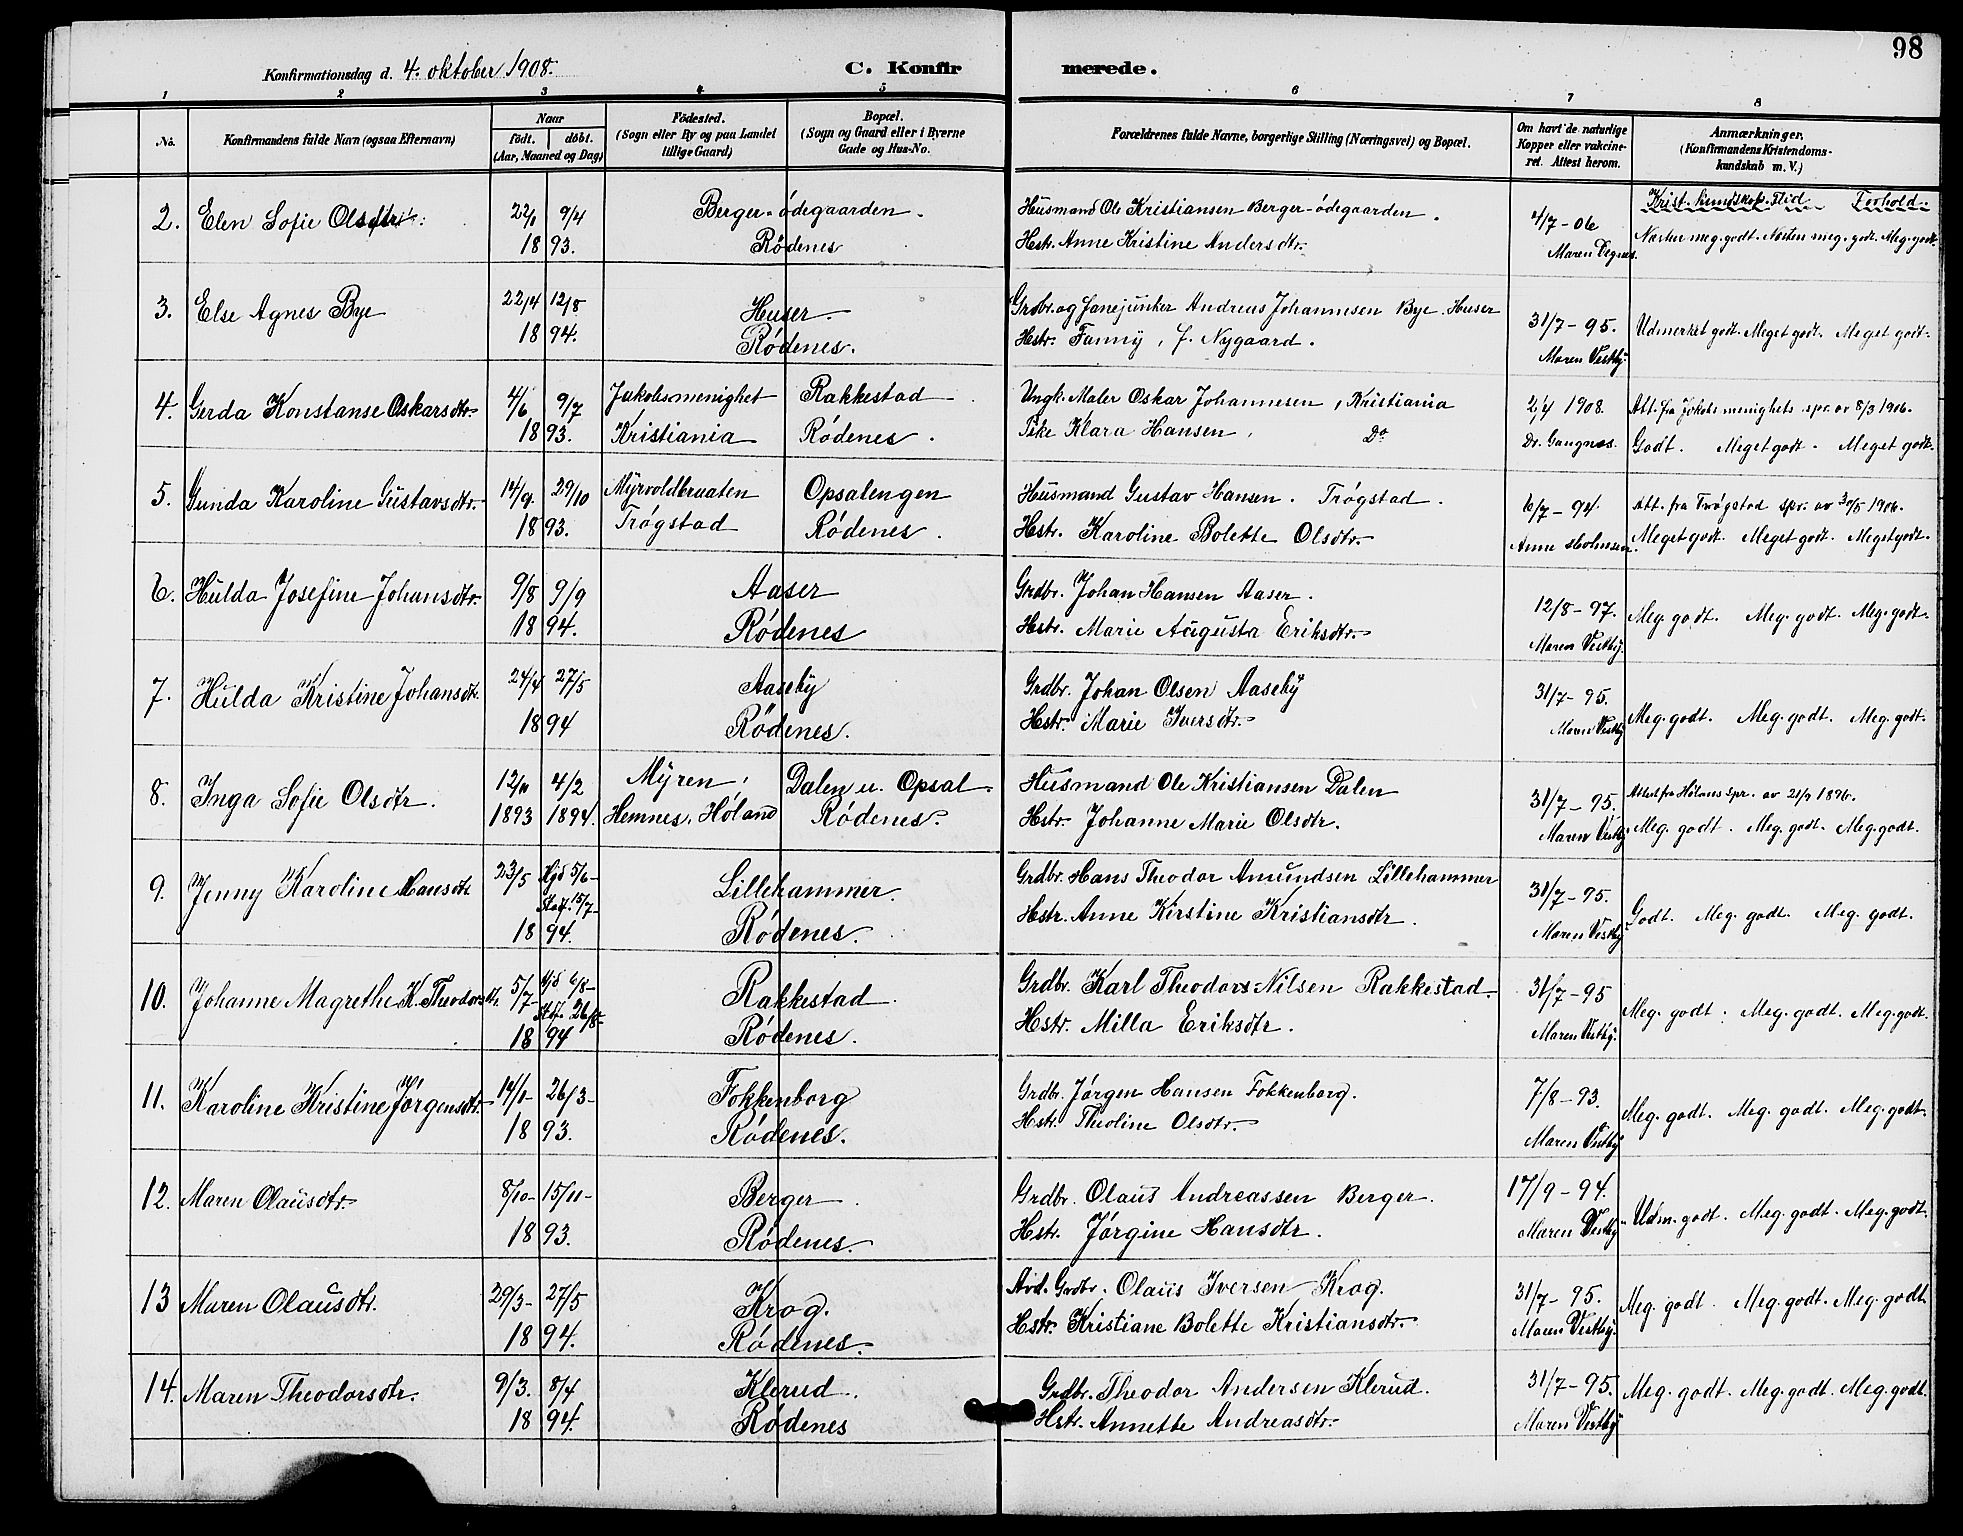 98
Konfirmationsdag d. 4. oktober 1908. C. Konfirmerede.
1 2 3 4 5 6 7 8
No. Konfirmandens fulde Navn (ogsaa Efternavn) Naar födt. döbt. (Aar, Maaned og Dag) Födested. (Sogn eller By og paa Landet tillige Gaard) Bopæl. (Sogn og Gaard eller i Byerne Gade og Hus-No. Forældrenes fulde Navne, borgerlige Stilling (Næringsvei) og Bopæl. Om havt de naturlige Kopper eller vakcineret. Attest herom. Anmærkninger. (Konfirmandens Kristendomskundskab m. V.)
Krist. kundskap. Flid Forhold.
2. Elen Sofie Olsdtr. 22/1 9/4 Berger-ödegaarden. Husmand Ole Kristiansen Berger-ödegaarden. 4/7-06
1893. Rödenes Hstr. Anne Kristine Andersdtr. Maren Næsten meg. godt. Næsten meg. godt. Meg. godt.
3. Else Agnes Bye 22/4 12/8 Huser. Grdbr. og fanejunker Andreas Johannesen Bye. Huser 31/7-95. Udmerket godt. Meget godt. Meget godt.
1894. Rödenes. Hstr. Fanny, f. Nygaard. Maren Vestby.
4. Gerda Konstanse Oskarsdtr. 4/6 9/7 Jakobsmenighet Rakkestad Ungk. Maler Oskar Johannesen, Kristiania 2/4 1908. Att. fra Jakobs menighets spr. av 8/3 1906.
1893. Kristiania Rödenes. Pike Klara Hansen, Do Dr. Gangnæs. Godt. Meget godt. Meget godt.
5. Gunda Karoline Gustavsdtr. 14/9 29/10 Myrvoldbraaten Opsalengen Husmand Gustav Hansen. Trögstad. 6/7-94. Att. fra Trögstad spr. av 30/5 1906.
1893. Trögstad Rödenes. Hstr. Karoline Bolette Olsdtr. Anne Holmsen. Meget godt. Meget godt. Meget godt.
6. Hulda Josefine Johansdtr. 9/8 9/9 Aaser Grdbr. Johan Hansen Aaser. 12/8-97. Meg. godt. Meg. godt. Meg. godt.
1894. Rödenes Hstr. Marie Augusta Eriksdtr. Maren Vestby.
7. Hulda Kristine Johansdtr. 24/4 27/5 Aaseby Grdbr. Johan Olsen Aaseby 31/7-95. Meg. godt. Meg. godt. Meg. godt.
1894 Rödenes. Hstr. Marie Iversdtr. Maren Vestby
8. Inga Sofie Olsdtr. 12/11 4/2 Myren, Dalen u. Opsal. Husmand Ole Kristiansen Dalen 31/7-95. Attest fra Hölands spr. av 21/9 1896.
1893 1894. Hemnes, Höland Rödenes. Hstr. Johanne Marie Olsdtr. Maren Vestby Meg. godt. Meg. godt. Meg. godt.
9. Jenny Karoline Hansdtr 23/5 Hjd 5/6- Stadf. 15/7- Lillehammer. Grdbr. Hans Theodor Amundsen Lillehammer 31/7-95. Godt. Meg. godt. Meg. godt.
1894. Rödenes. Hstr. Anne Kirstine Kristiansdtr. Maren Vestby
10. Johanne Magrethe K. Theodorsdtr. 5/7- Hjd 6/8- Stdf. 26/8- Rakkestad. Grdbr. Karl Theodors Nilsen Rakkestad. 31/7-95 Meg. godt. Meg. godt. Meg. godt.
1894 Rödenes. Hstr. Milla Eriksdtr. Maren Vestby.
11. Karoline Kristine Jörgensdtr. 14/1- 26/3- Fokkenborg Grdbr. Jörgen Hansen Fokkenborg. 7/8-93. Meg. godt. Meg. godt. Meg. godt.
1893. Rödenes. Hstr. Theoline Olsdtr. Maren Vestby
12. Maren Olausdtr. 8/10- 15/11- Berger Grdbr. Olaus Andreassen Berger. 17/9-94. Udm. godt. Meg. godt. Meg. godt.
1893. Rödenes. Hstr. Jörgine Hansdtr. Maren Vestby
13 Maren Olausdtr. 29/3- 27/5 Krog. Avd. Grdbr. Olaus Iversen Krog. 31/7-95. Meg. godt. Meg. godt. Meg. godt.
1894. Rödenes. Hstr. Kristiane Bolette Kristiansdtr. Maren Vestby.
14. Maren Theodorsdtr. 9/3. 8/4 Klerud. Grdbr. Theodor Andersen Klerud. 31/7-95. Meg. godt. Meg. godt. Meg. godt.
1894. Rödenes Hstr. Annette Andreasdtr. Maren Vestby